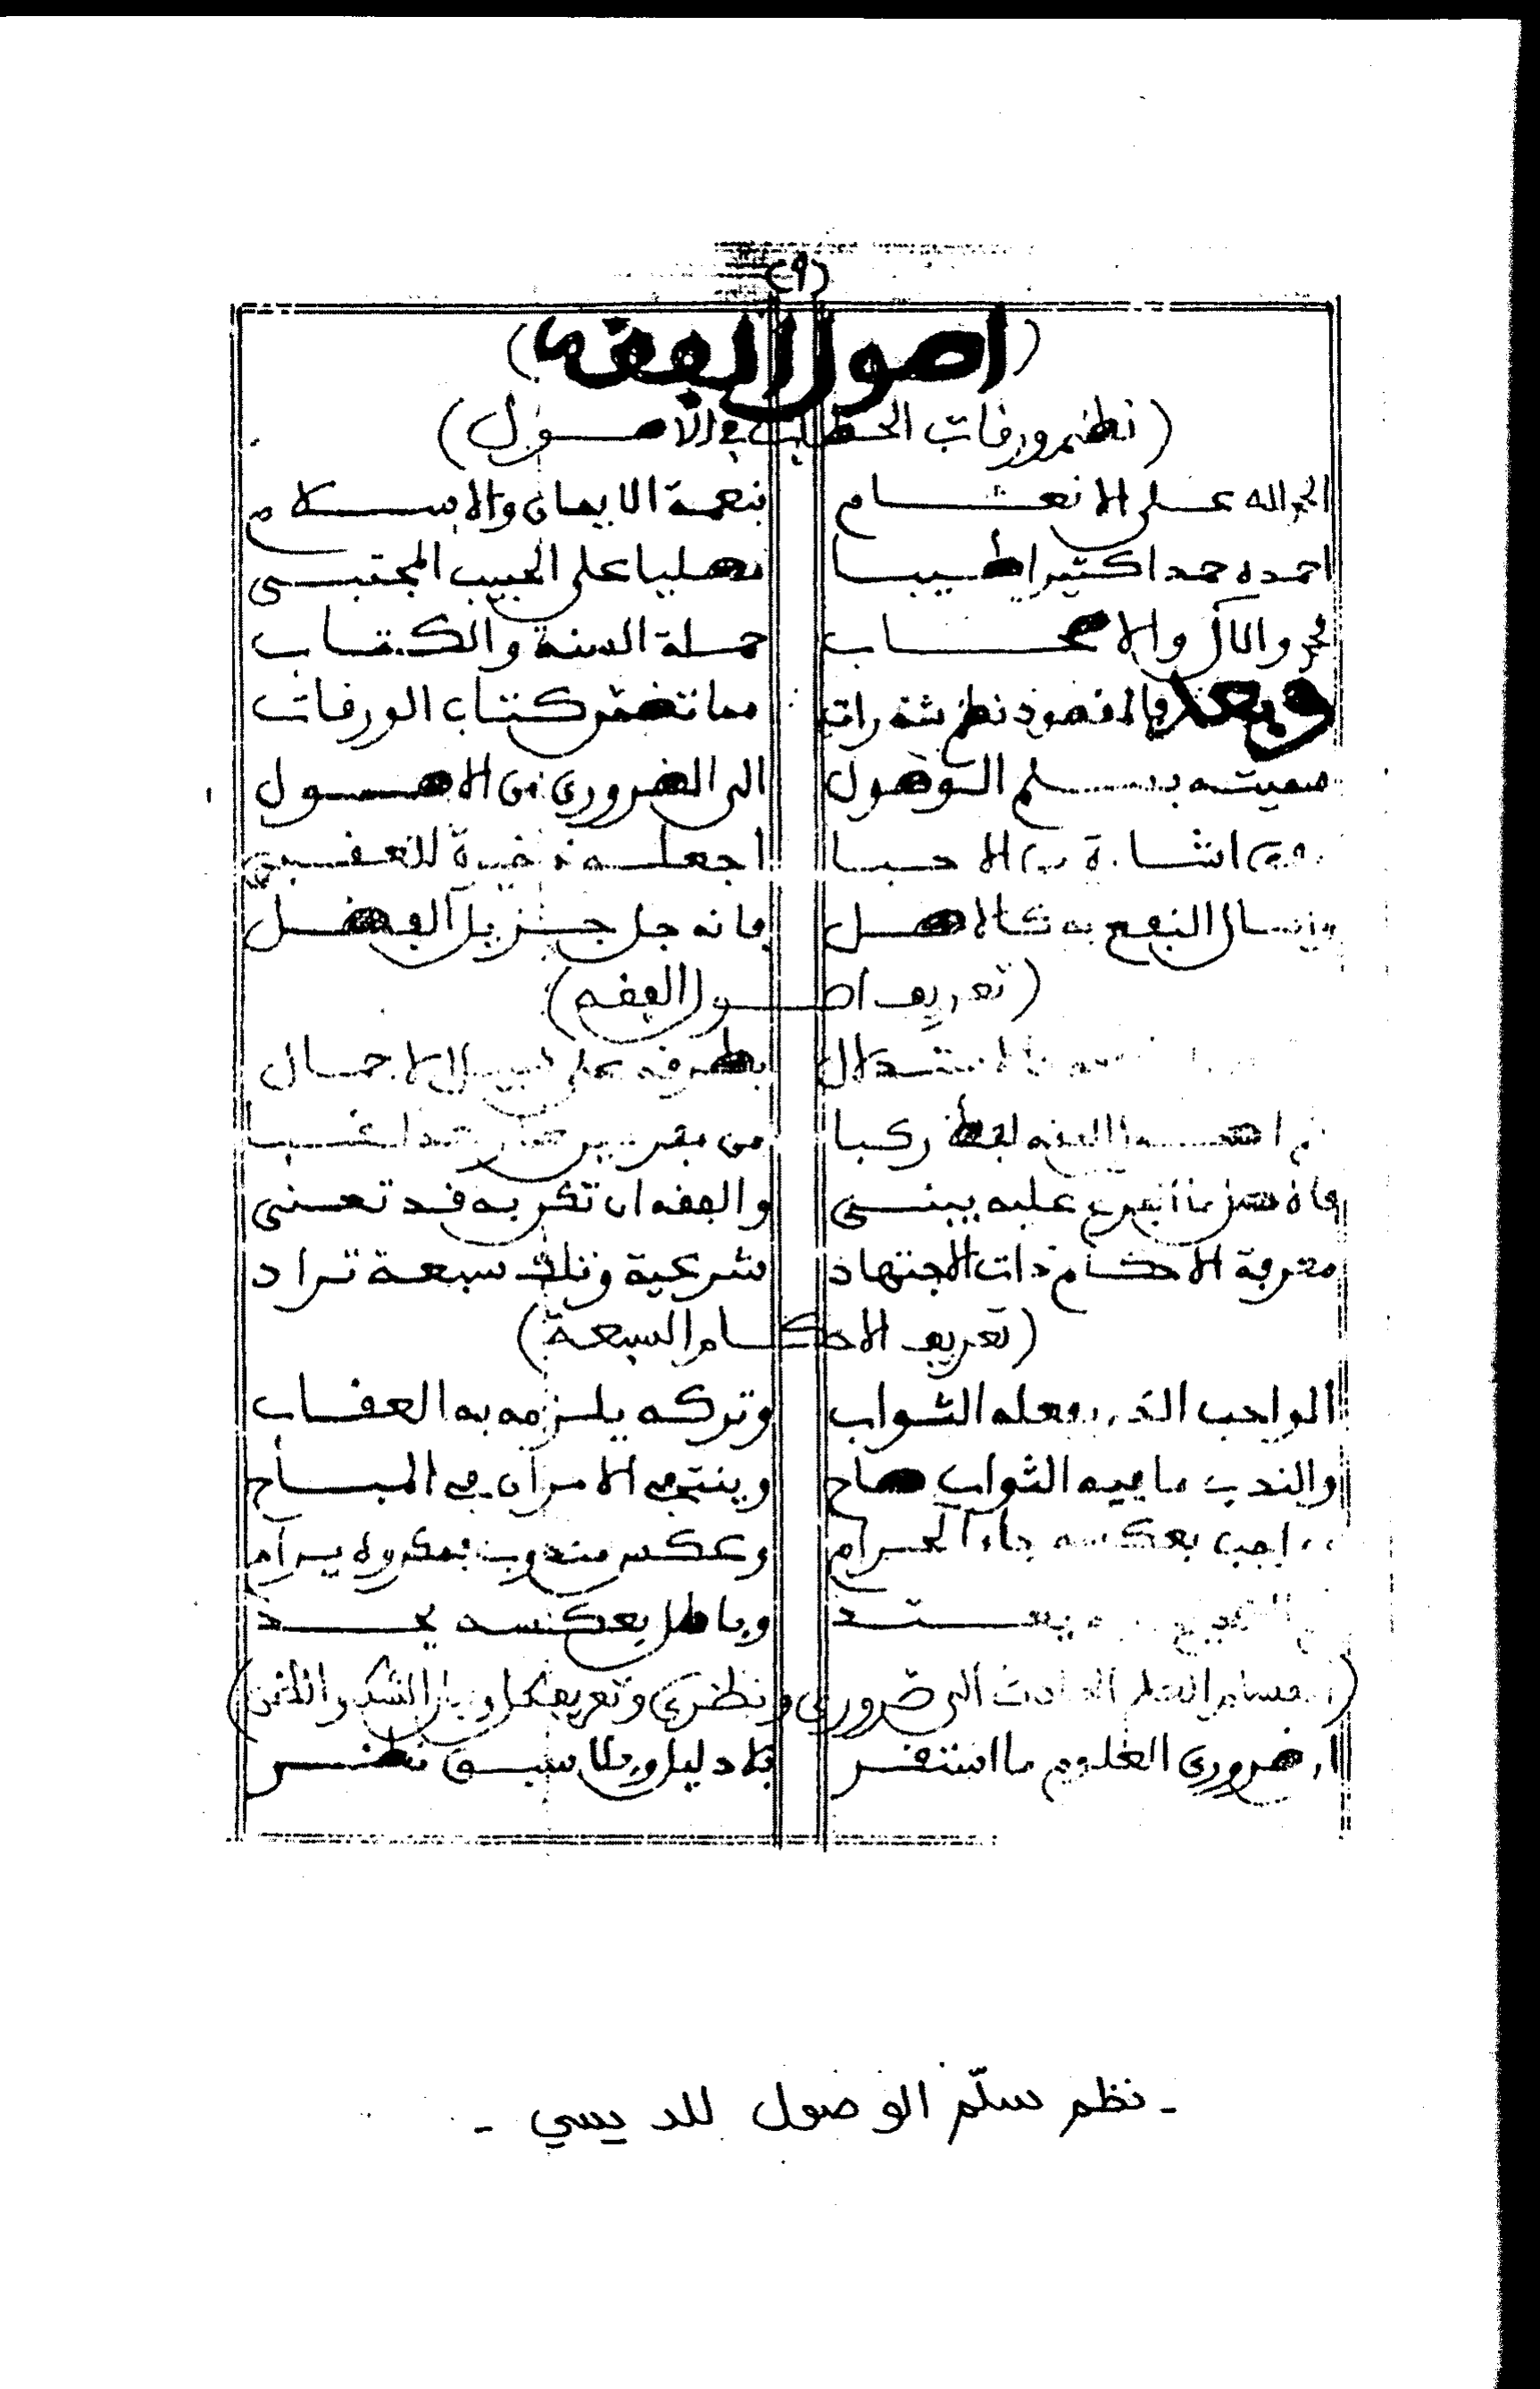 (٩)
(اصول الفقه)
(نظم ورقات الخطاب في الاصول)
الحمد لله على الانعام بنعمة الايمان والاسلام
احمده حمدا كثيرا طيبا مصليا على الحبيب المجتبى
محمد والآل والاصحاب حملة السنة والكتاب
وبعد فالمقصود نظم شذرات مما تضمن كتاب الورقات
سميته بسلم الوصول الى الضروري من الاصول
اشارة الاحبا اجعله ذخيرة للعقبى
النفع به كالاصل فانه جل جزيل الفضل
(تعريف اصول الفقه)
الاستدلال بطرقه على سبيل الاجمال
اصول الفقه لفظ ركبا من
فالاصل ما الفرع عليه يبنى والفقه ان تكر به قد تعنى
معرفة الاحكام ذات الاجتهاد شرعية وتلك سبعة تراد
(تعريف الاحكام السبعة)
الواجب الذي بفعله الثواب وتركه يلزمه به العقاب
والندب ما فيه الثواب صاح وينتفي الامران في المباح
واجب بعكسه جاء الحرام وعكس مندوب بمكروه يرام
يعتد وباطل بعكسه يحد
(انقسام العلم الحادث الى ضروري ونظري وتعريف كل وبيان الشك والظن)
ان ضروري العلوم ما استقر بلا دليل وبلا سبق نظر
- نظم سلّم الوصول للديسي -